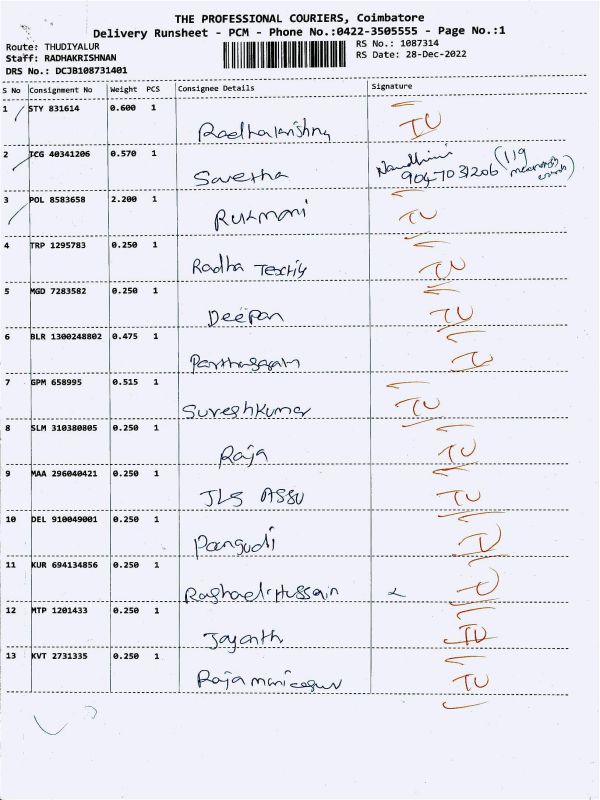 THE PROFESSIONAL COURIERS, Coimbatore
Delivery Runsheet - PCM - Phone No.:0422-3505555 - Page No.:1
Route: THUDIYALUR RS No.: 1087314
Staff: RADHAKRISHNAN RS Date: 28-Dec-2022
DRS No.: DCJB108731401
S No Consignment No Weight PCS Consignee Details Signature
1 STY 831614 0.600 1
Radhakrishna IU
2 TCG 40341206 0.570 1 Nandhini (119
Swetha 9047031206
3 POL 8583658 2.200 1
Rukmani IU
4 TRP 1295783 0.250 1
Radha IU
5 MGD 7283582 0.250 1
Deepan IU
6 BLR 1300248802 0.475 1
IU
7 GPM 658995 0.515 1
Sureshkumar IU
8 SLM 310380805 0.250 1
Raja IU
9 MAA 296040421 0.250 1
JLS IU
10 DEL 910049001 0.250 1
Pangudi
11 KUR 694134856 0.250 1
Hussain
12 MTP 1201433 0.250 1
Jayanth IU
13 KVT 2731335 0.250 1
IU